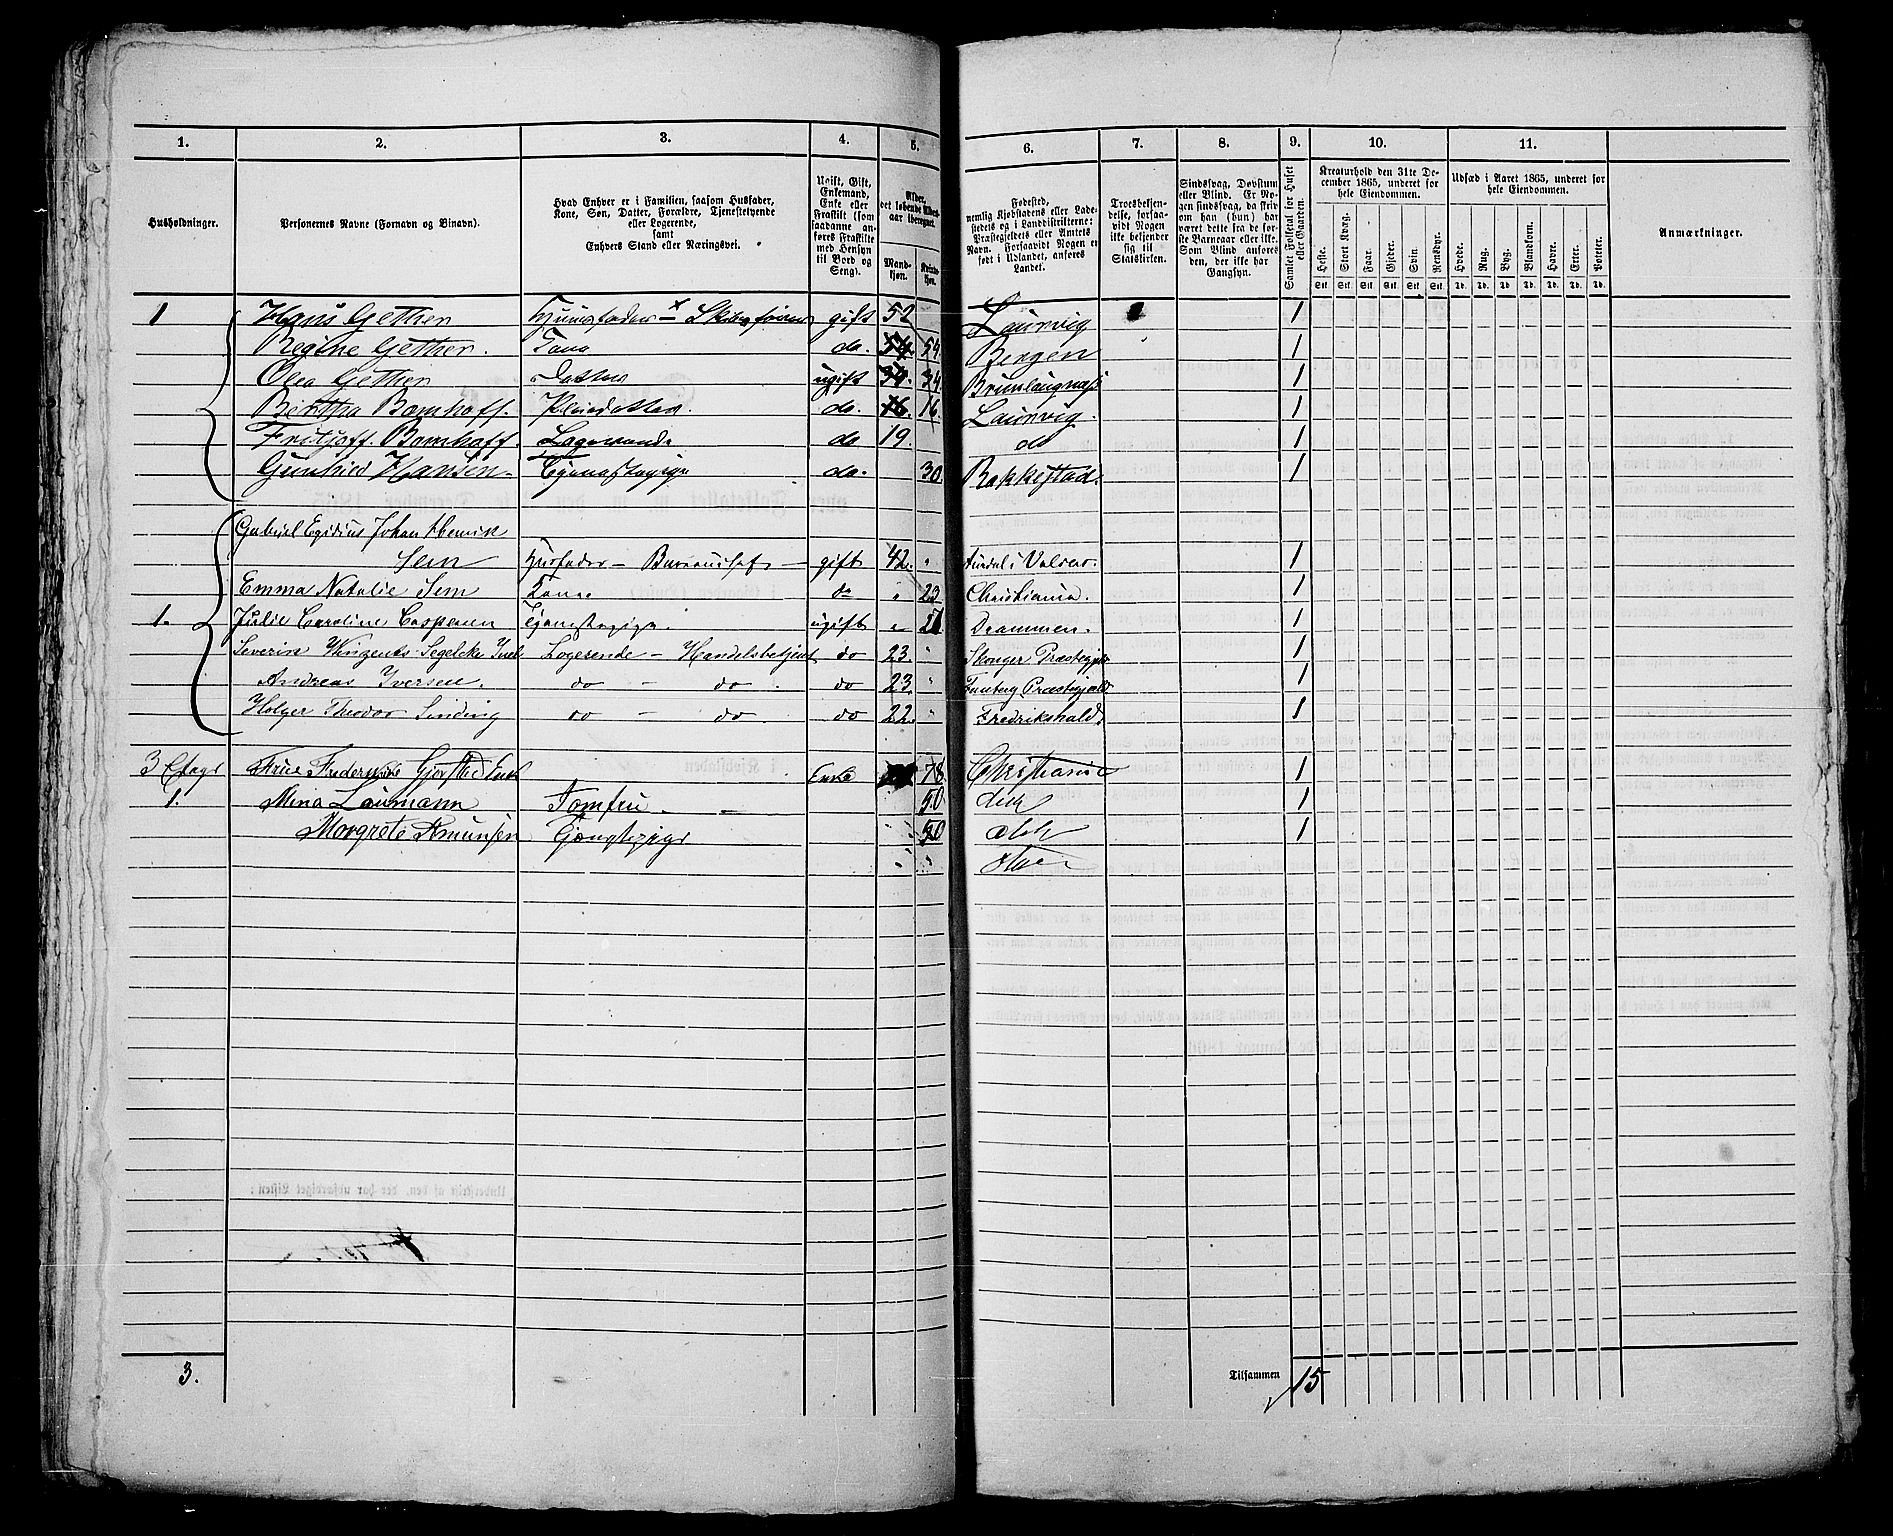 1. 2. 3. 4. 5. 6. 7. 8. 9. 10. 11.
Husholdninger.
Personernes Navne (Fornavn og Binavn).
Hvad Enhver er i Familien, saasom Husfader, Kone, Søn, Datter, Forældre, Tjenestetyende eller Logerende, samt Enhvers Stand eller Næringsvei.
Ugift, Gift, Enkemand, Enke eller Fraskilt (som saadanne anføres Fraskilte med Hensyn til Bord og Seng).
Alder, det løbende Alders-aar iberegnet.
Mand-kjøn. Kvinde-kjøn.
Fødested, nemlig Kjøbstadens eller Ladestedets og i Landdistrikterne: Præstegjeldets eller Amtets Navn. Forsaavidt Nogen er født i Udlandet, anføres Landet.
Troesbekjendelse, forsaavidt Nogen ikke bekjender sig til Statskirken.
Sindssvag, Døvstum eller Blind. Er Nogen sindssvag, da skrives om han (hun) har været dette fra de første Barneaar eller ikke. Som Blind anføres den, der ikke har Gangsyn.
Samlet Folketal for Huset eller Gaarden.
Kreaturhold den 31te December 1865, underet for hele Eiendommen.
Heste. Stort Kvæg. Faar. Gjeder. Sviin. Rensdyr.
Udsæd i Aaret 1865, underet for hele Eiendommen.
Hvede. Rug. Byg. Blandkorn. Havre. Erter. Poteter.
Anmærkninger.
1 Hans Gether Huusfader - Skibsfører gift 52 Laurvig 1
Regine Gether. Kone do. 54. 54. Bergen 1
Olea Gether Datter ugift 34. 34 Brunlaugnæs 1
Bertha Bomhoff. Pleiedatter. do. 16 16. Laurvig. 1
Fritjoff. Bomhoff. Logerende do 19. do 1
Gunhild Hansen - Tjenestepige do. 30. Rakkestad. 1
Gabriel Egidius Johan Henrik
Sem Husfader - Bureauchef - gift 42. " Aurdal i Valders. 1
Emma Natalie Sem Kone do " 23 Christiania. 1
1. Julie Caroline Caspersen Tjenestepige. ugift " 21. Drammen. 1
Severin Segelcke Logerende - Handelsbetjent do 23. " Præstegjeld 1
Andreas Iversen. do - do. do 23. " Præstegjeld 1
Holger Theodor Sinding do - do. do 22. " Fredrikshald. 1
3 Etage Frue Enke 78. Christiania 1
1. Mina Laumann Jomfru. - 50 dito 1
Margrete Amunsen Tjenestepige 50 dito 1
3. Tilsammen 15